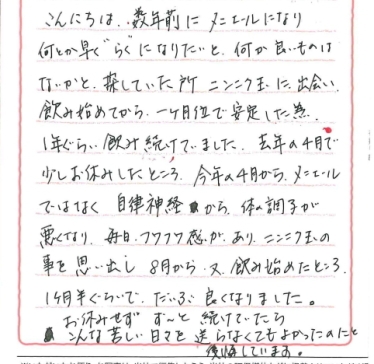 こんにちは、数年前に メニエールになり
何とか早く"らく"になりたいと、何か良いものは
ないかと、探していた所 ニンニク玉に出会い、
飲み始めてから、一ヶ月位で安定した為、
1年ぐらい飲み続けていました。去年の4月で
少しお休みしたところ、今年の4月から、メニエール
ではなく 自律神経から、体の調子が
悪くなり、毎日、フワフワ感があり、ニンニク玉の
事を思い出し 8月から 又、飲み始めたところ、
1ヶ月半ぐらいで、だいぶ良くなりました。
お休みせず ずーと続けていたら
こんな苦しい日々を送らなくてもよかったのにと
後悔しています。